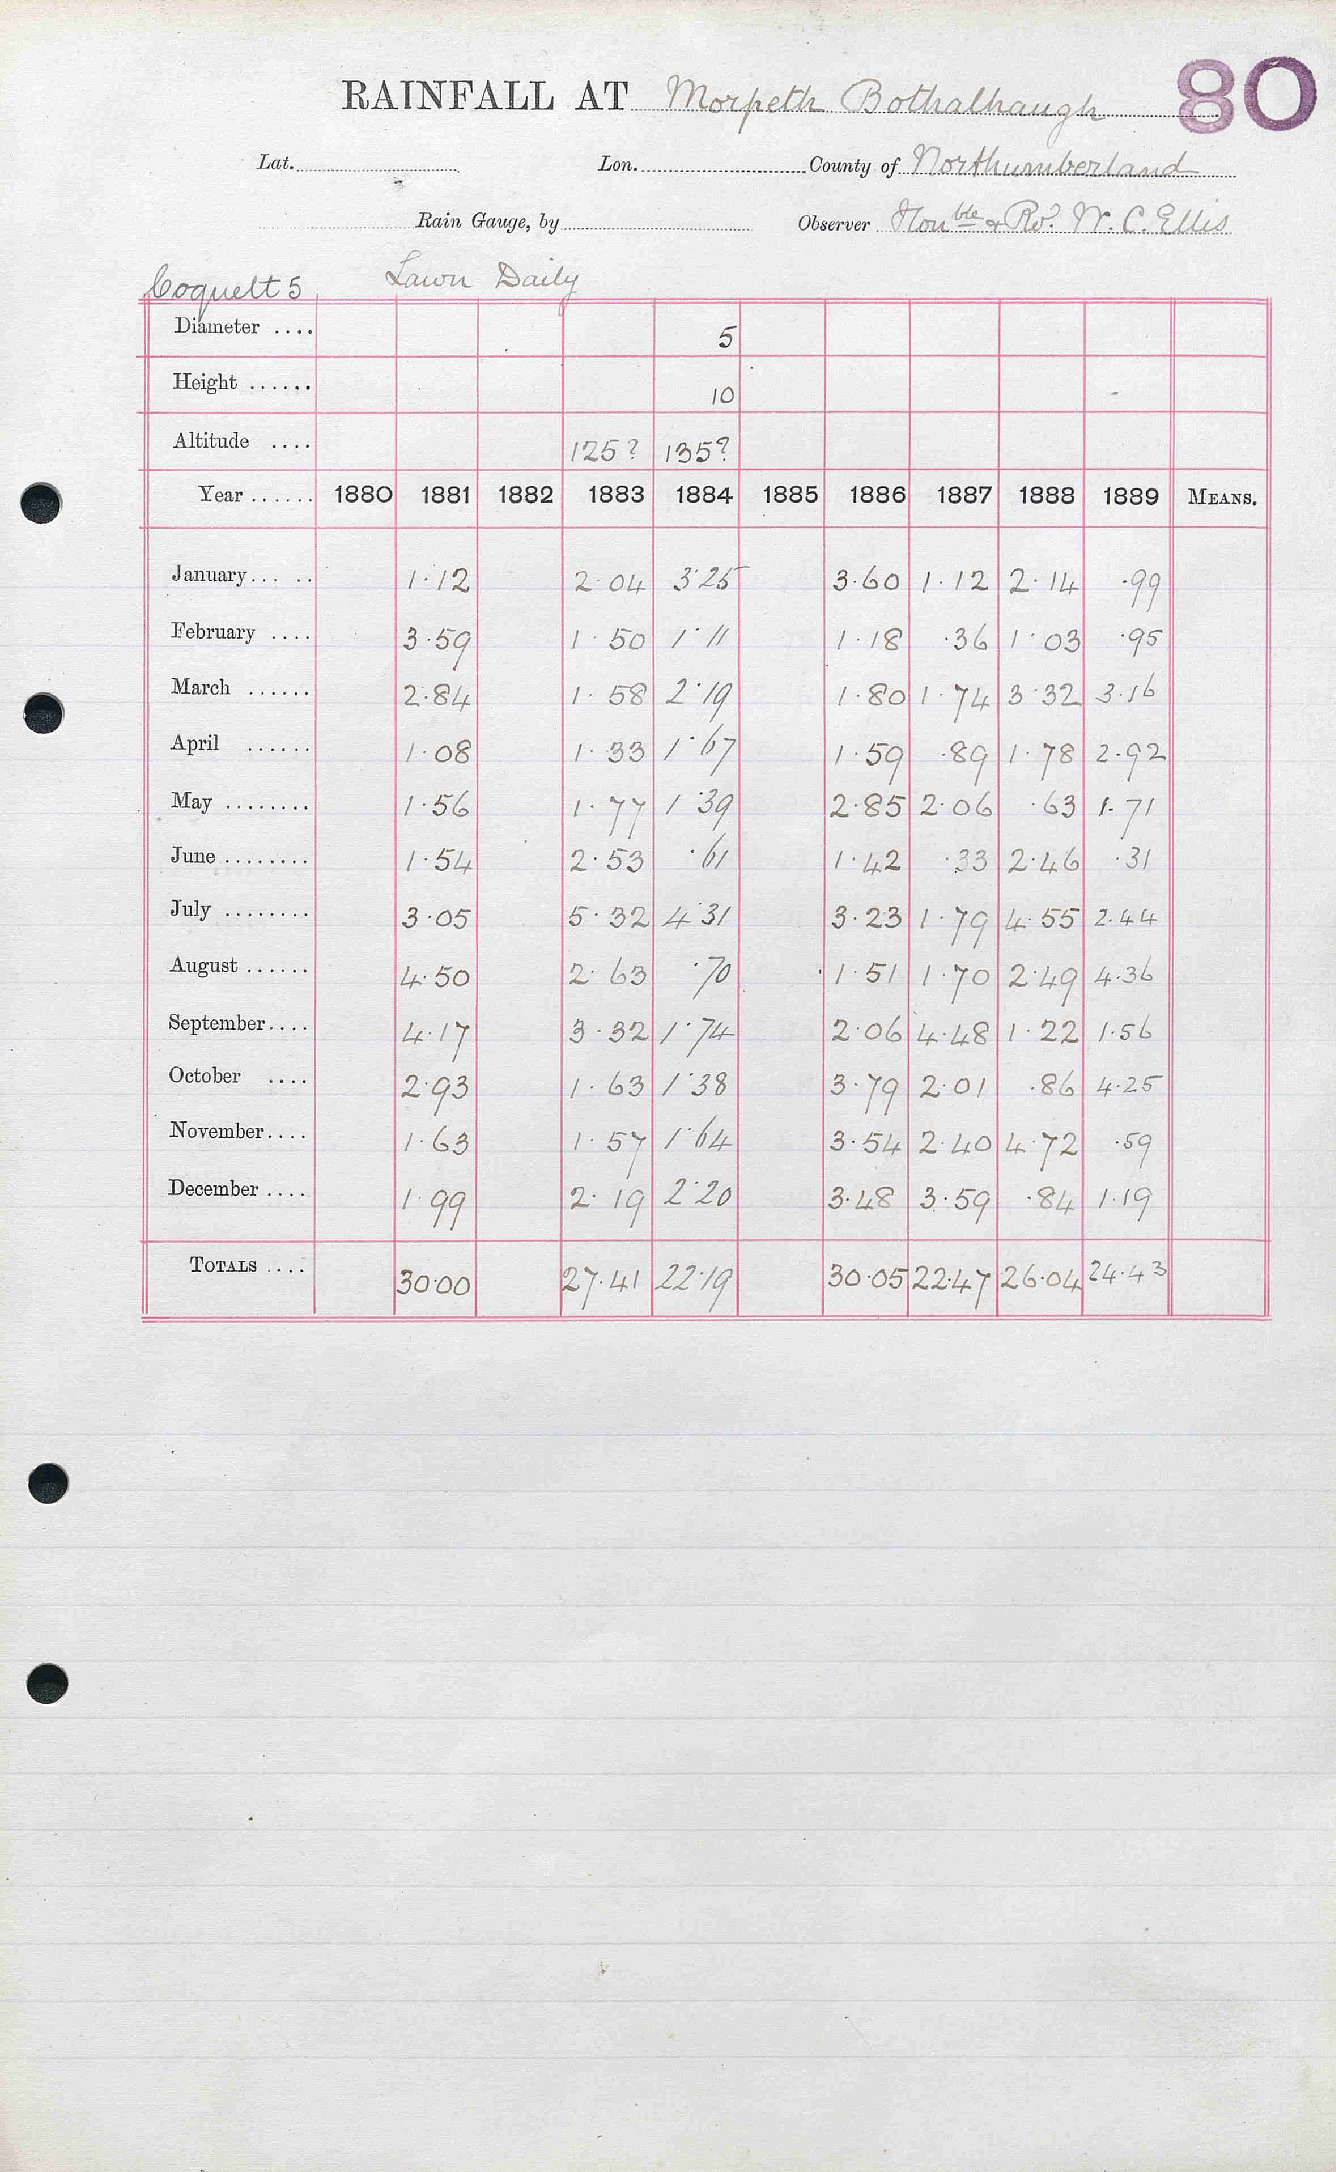 80
RAINFALL AT Morpeth Bothalhaugh
Lat. Lon. County of Northumberland
Rain Gauge, by Observer Honble & Rd. W. C. Ellis
Coquett 5 Lawn Daily
Diameter .... 5
Height ...... 10
Altitude .... 125? 135?
Year ...... 1880 1881 1882 1883 1884 1885 1886 1887 1888 1889 MEANS.
January... .. 1.12 2.04 3.25 3.60 1.12 2.14 .99
February .... 3.59 1.50 1.11 1.18 .36 1.03 .95
March ...... 2.84 1.58 2.19 1.80 1.74 3.32 3.16
April ...... 1.08 1.33 1.67 1.59 .89 1.78 2.92
May ........ 1.56 1.77 1.39 2.85 2.06 .63 1.71
June ........ 1.54 2.53 .61 1.42 .33 2.46 .31
July ........ 3.05 5.32 4.31 3.23 1.79 4.55 2.44
August ...... 4.50 2.63 .70 1.51 1.70 2.49 4.36
September.... 4.17 3.32 1.74 2.06 4.48 1.22 1.56
October .... 2.93 1.63 1.38 3.79 2.01 .86 4.25
November.... 1.63 1.57 1.64 3.54 2.40 4.72 .59
December .... 1.99 2.19 2.20 3.48 3.59 .84 1.19
TOTALS .... 30.00 27.41 22.19 30.05 22.47 26.04 24.43